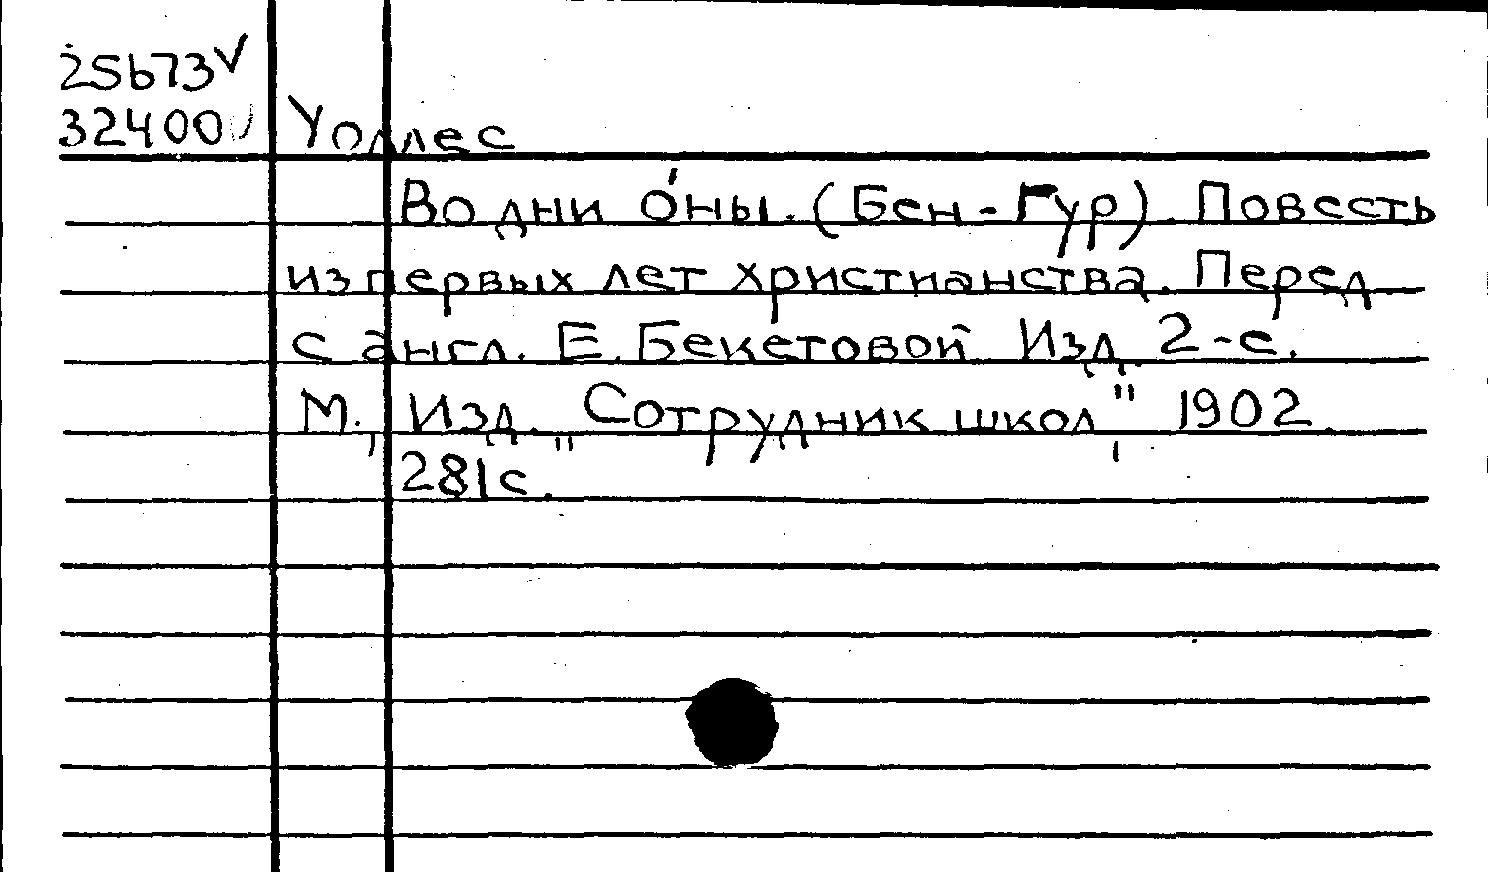 25673V
32400V Уоллес
Во дни о́ны. (Бен-Гур). Повесть
из первых лет христианства. Перед
с англ. Е. Бекетовой Изд. 2-е.
М., Изд. „Сотрудник школ", 1902.
281с.